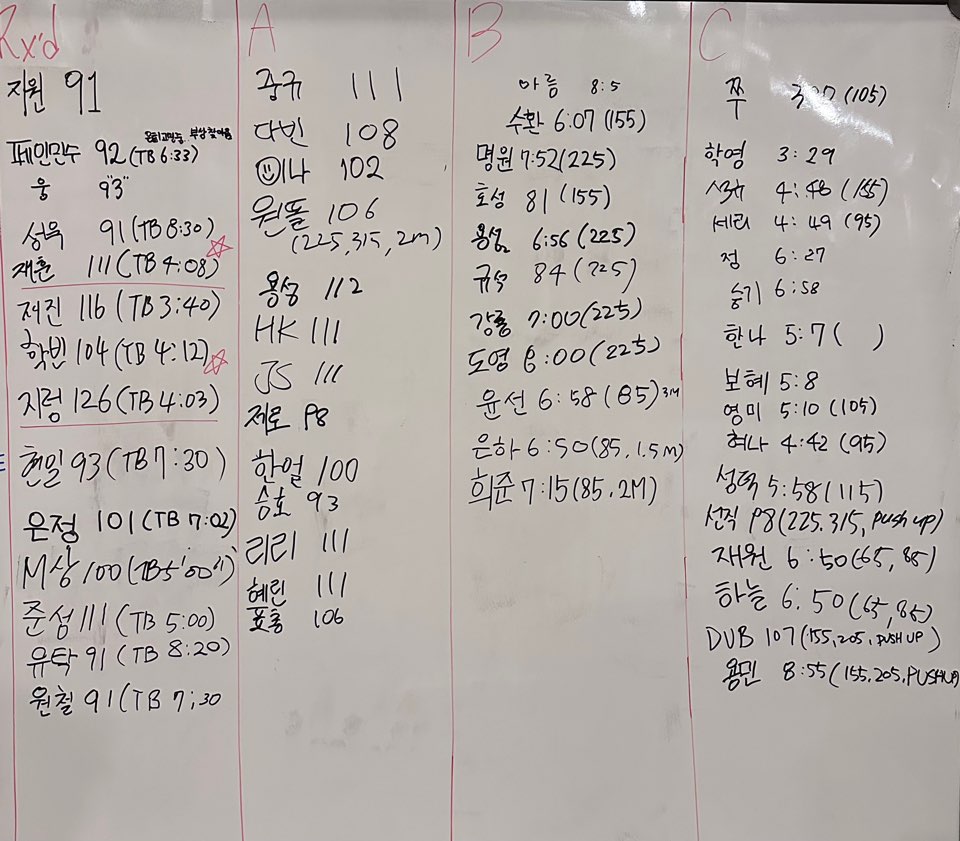 Rx'd
지원 91
페인민수 92 (TB 6:33)
웅 93"
성욱 91 (TB 8:30)
재훈 111 (TB 4:08)
재진 116 (TB 3:40)
학빈 104 (TB 4:12)
지렁 126 (TB 4:03)
현일 93 (TB 7:30)
은정 101 (TB 7:02)
M상 100 (TB 5'00")
준섬 111 (TB 5:00)
유탁 91 (TB 8:20)
원철 91 (TB 7:30
A
중규 111
다빈 108
이나 102
원똘 106
(225, 315, 2m)
용성 112
HK 111
JS 111
제로 98
한얼 100
승호 93
리리 111
혜린 111
106
B
아름 8:5
수환 6:07 (155)
명원 7:52 (225)
호성 81 (155)
용섬 6:56 (225)
규석 84 (225)
7:00 (225)
도영 6:00 (225)
윤선 6:58 (85) 3M
은하 6:50 (85, 1.5m)
희준 7:15 (85, 2M)
C
쭈 (105)
학영 3:29
4:48 (155)
세리 4:49 (95)
정 6:27
승기 6:58
한나 5:7 ( )
보혜 5:8
영미 5:10 (105)
허나 4:42 (95)
성덕 5:58 (115)
선직 98 (225, 315, push up)
재원 6:50 (65, 85)
하늘 6:50 (65, 85)
DUB 107 (155, 205, PUSH UP)
용민 8:55 (155, 205, PUSHUP